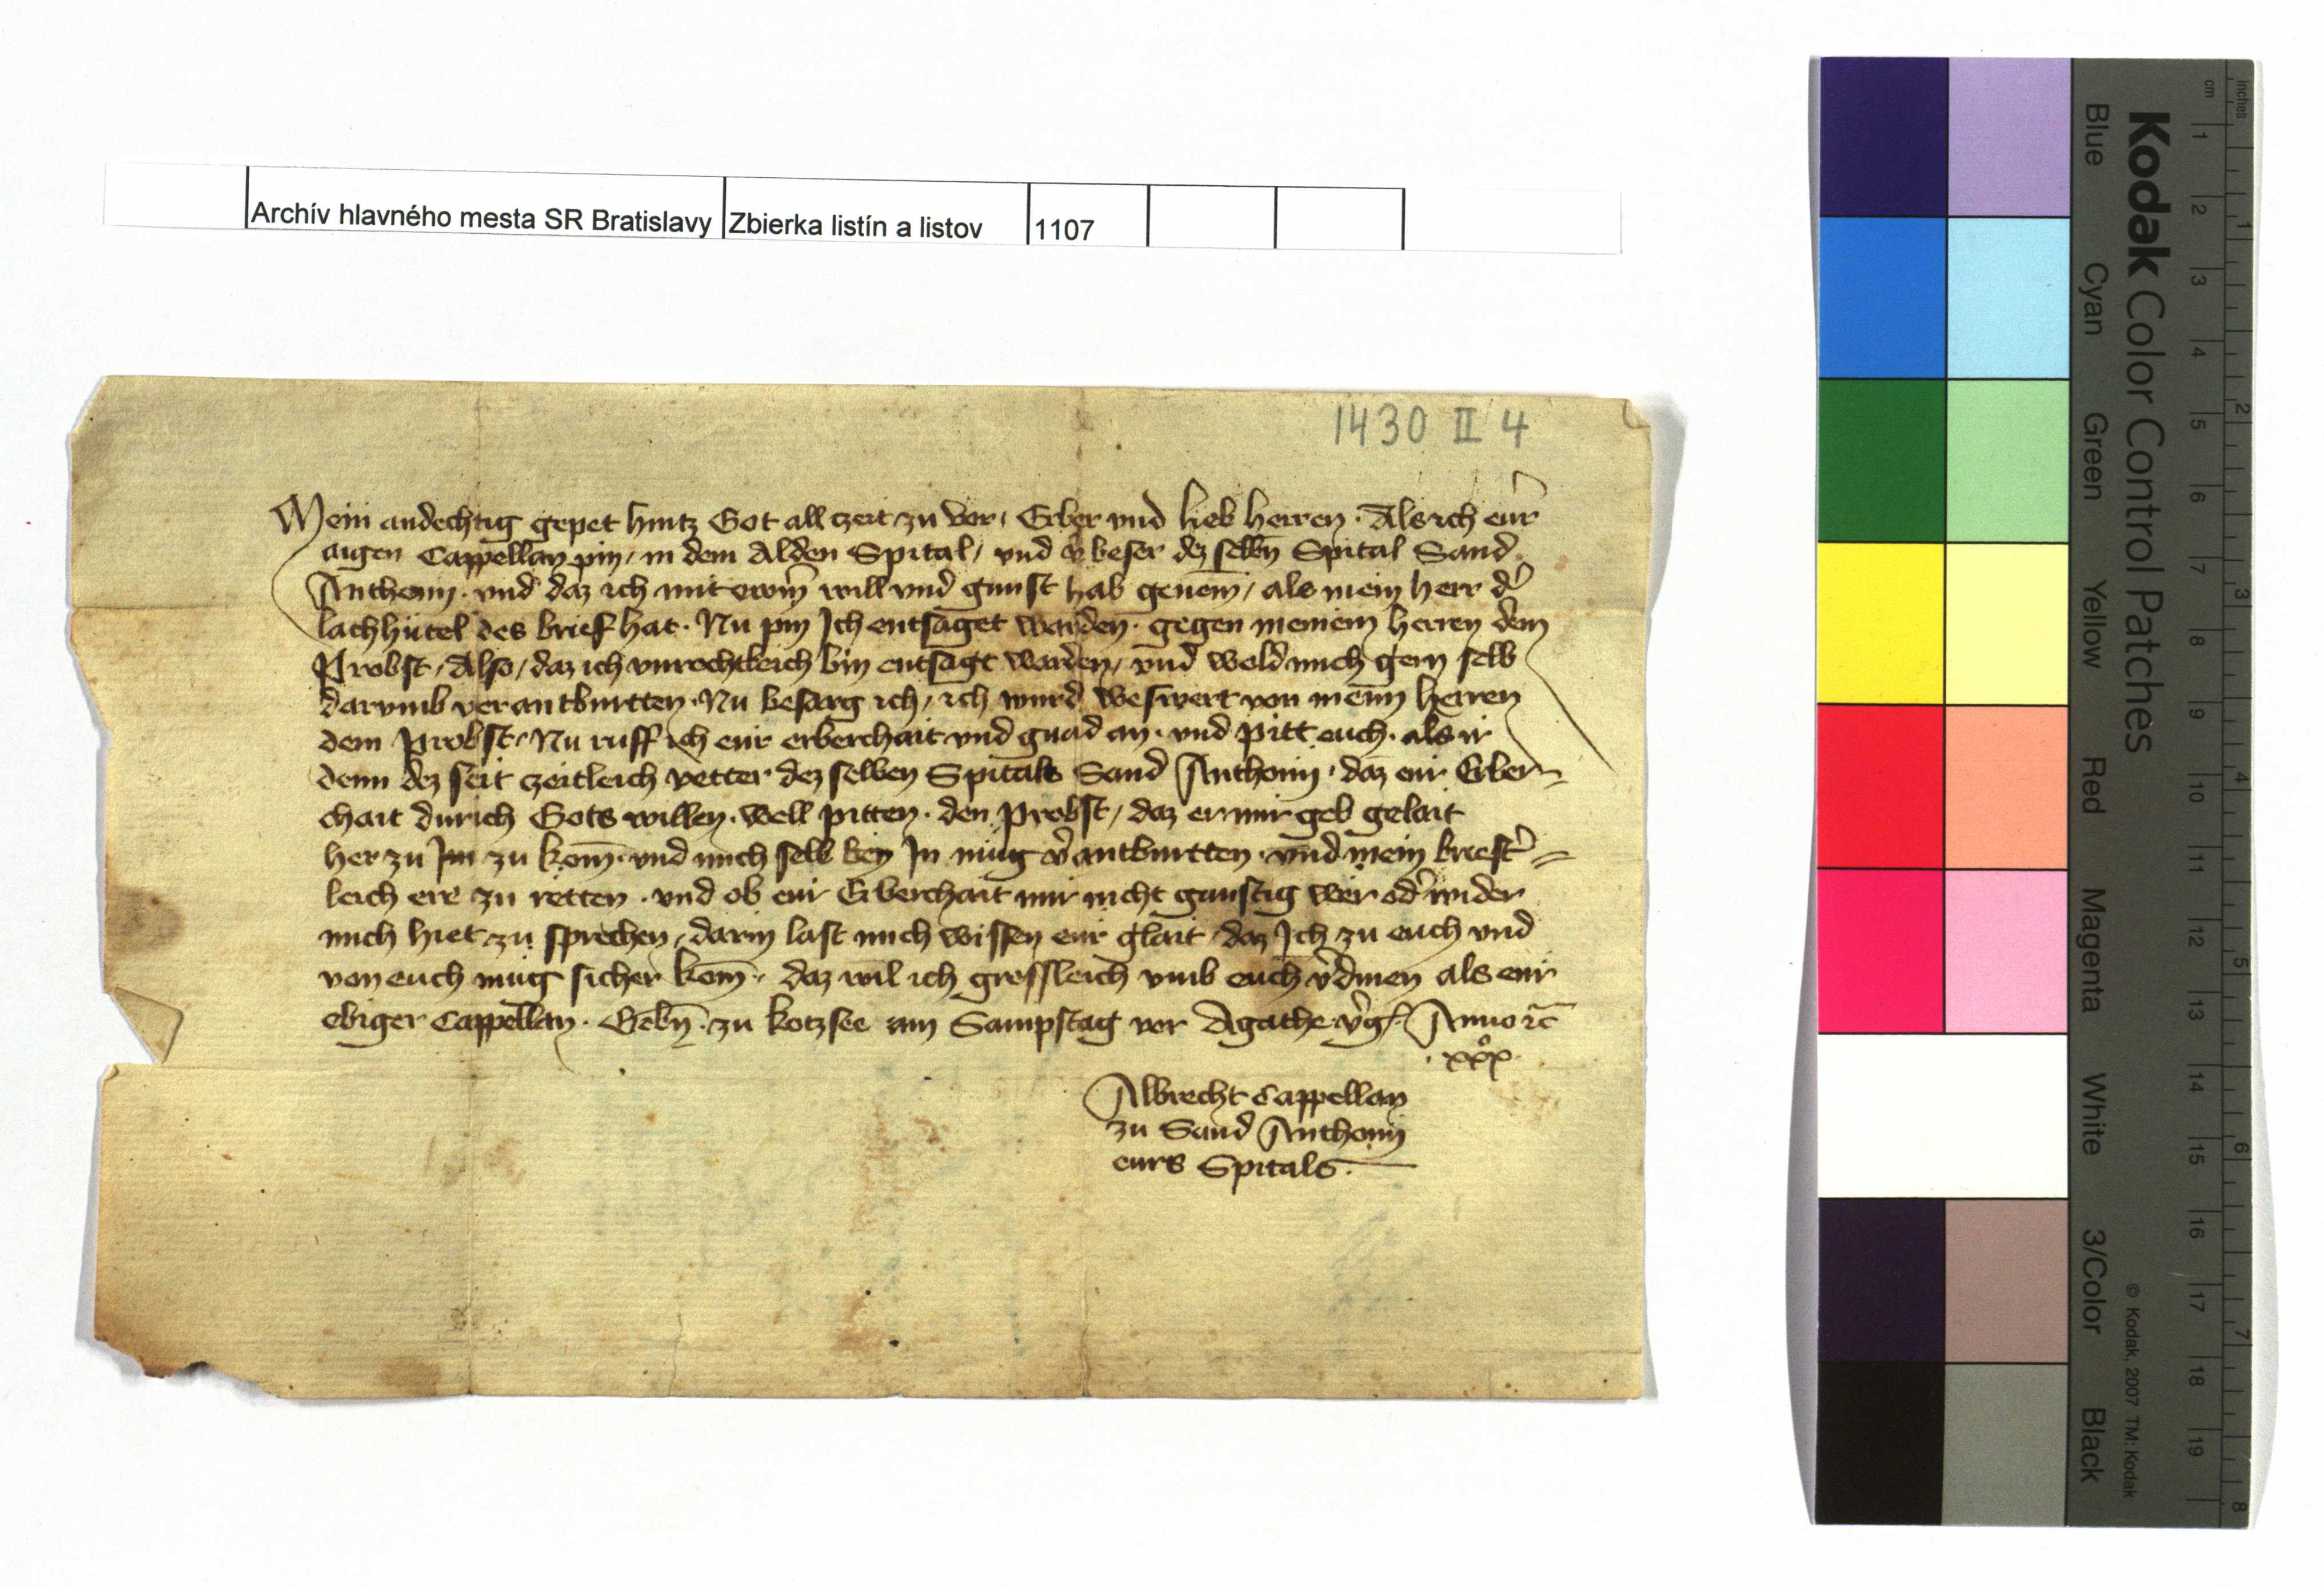 Archív hlavného mesta SR Bratislavy Zbierka listín a listov 1107
1430 II 4
Mein andechtig gepet hintz Got all czeit zu vor, Erber vnd lieb herren. Als ich eur̄
aigen Cappellan pin, in dem Alden Spital, vnd v̄beser dez selbn̄ Spital Sand
Anthonij. vnd daz ich mit ewrm̄ will vnd gunst hab genem̄, als mein herr d̄
lachhütel des brief hat. Nu pin Ich entsaget warden. gegen meinem herren dem
Probst, Also, daz ich vnrechtleich bin entsagt warden, vnd wold mich gern selb
darvmb verantburtten. Nu besarg ich, ich wurd beswert von meim̄ herren
dem Probst. Nu ruff ich eur erberchait vnd gnad an. vnd pitt euch. als ir
denn dez seit czeitleich vetter dez selben Spitals Sand Anthonij. daz eur Erber-
chait durich Gots willen. well pitten. den Probst, daz er mir geb gelait
her zu Im zu kom̄. vnd mich selb bey In müg v̄antburtten. vnd mein briest̄=
leich ere zu retten. vnd ob eur Erberchait mir nicht gunstig wer od̄ wider
mich hiet zu sprechen, darin last mich wissen eur glait, daz Ich zu euch vnd
von euch müg sicher kom̄. daz wil ich grossleich vmb euch v̄dinen als eur
ebiger Cappellan. Gebn̄. zu kotzsee am Sampstag vor Agathe v̄ḡ. Anno ꝛc̄
xxx°
Albrecht Cappellan
zu Sand Anthonij
eurs Spitals.
Kodak Color Control Patches
Blue Cyan Green Yellow Red Magenta White 3/Color Black
© Kodak, 2007 TM: Kodak
inches 1 2 3 4 5 6 7 8
cm 1 2 3 4 5 6 7 8 9 10 11 12 13 14 15 16 17 18 19